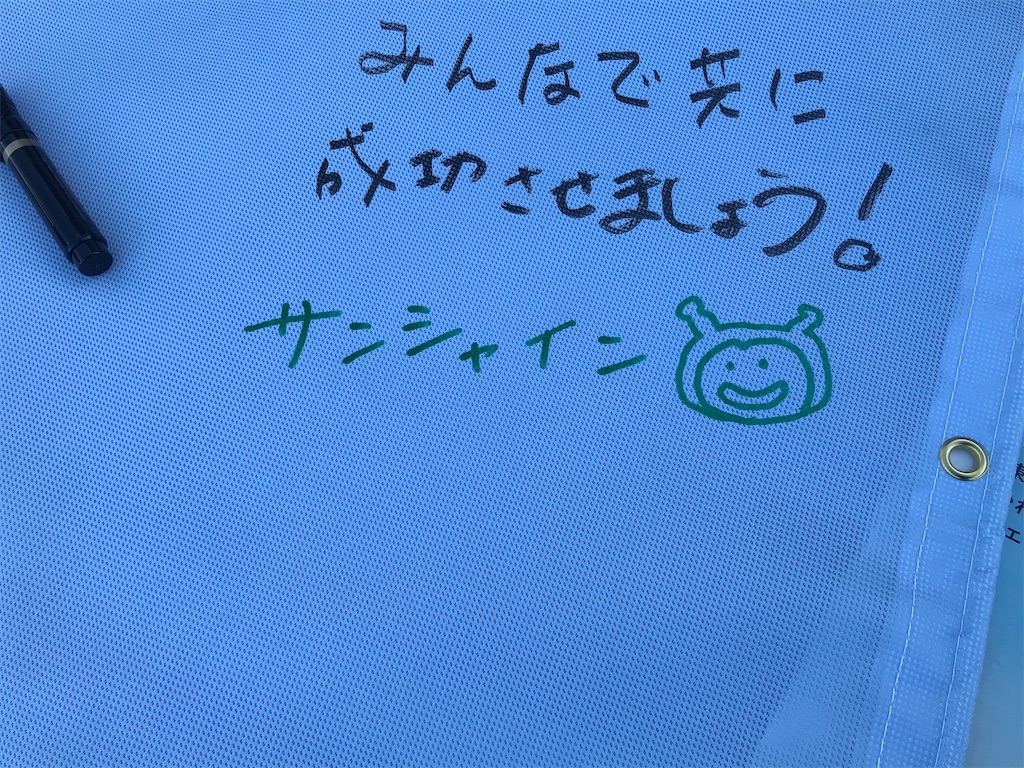 みんなで共に
成功させましょう!
サンシャイン
エ